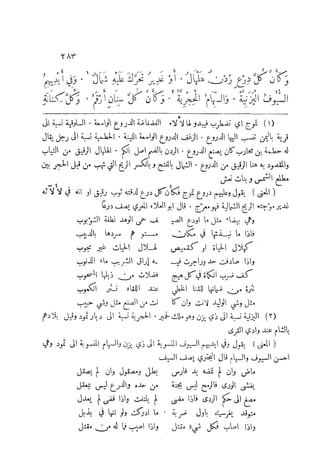 ٢٨٣
وَكَأَنَّ كُلَّ دِرْعٍ رُدْنُ هَلْهَالٍ ٠ أَوْ غَدِيرٌ تَحَرَّكَ عَلَيْهِ شَمَالٌ ١ ٠ وَفِي أَيْدِيهِمُ
السُّيُوفُ الْيَزَنِيَّةُ ٠ وَالسِّهَامُ الْحِجْرِيَّةُ ٢ ٠ وَكَأَنَّ كُلَّ سِنَانٍ أَرْقَمُ ٠ وَكُلَّ كِنَانَةٍ
(١) تموج اي تضطرب فيبدو لها لألاء ٠ الفضفاضة الدروع الواسعة ٠ السلوقية نسبة الى
قرية باليمن تنسب اليها الدروع ٠ الزغف الدروع الواسعة اللينة ٠ الحطمية نسبة الى رجل يقال
له حطمة بن محارب كان يصنع الدروع ٠ الردن بالضم اصل الكم ٠ الهلهال الرقيق من الثياب
والمقصود به هنا الرقيق من الدروع ٠ الشمال بالفتح وبالكسر الريح التي تهب من قبل الحجر بين
مطلع الشمس وبنات نعش
( المعنى ) يقول وعليهم دروع تموج فكأن كل درع لدقته ثوب رقيق او انه في لألائه
غدير موّجته الريح الشمالية فهو معرّج ٠ قال ابو العلاء المعري يصف درعًا
وهي بيضاء مثل ما اودع الصيـ ف حمى الوهد نطفة الشؤبوب
فاذا ما نبذتها في مكان مستوٍ هم سردها بالدبيب
كهلال الحياة او كقميص لهلال الحيات غير مجوب
واذا صادفت حدورا جرت فيـ ـه إراق الشريب ماء الذنوب
كف ضرب الكماة في كل هيج فضلات من ذيلها المسحوب
نثرة من ضمانها للقنا الخطي عند اللقاء نثر الكعوب
مثل وشي الوليد لانت وان كا نت من الصنع مثل وشي حبيب
(٢) اليزنية نسبة الى ذي يزن وهو ملك لحمير ٠ الحجرية نسبة الى ديار ثمود وقيل بلادهم
بالشام عند وادي القرى
( المعنى ) يقول وفي ايديهم السيوف المنسوبة الى ذي يزن والسهام المنسوبة الى ثمود وهي
احسن السيوف والسهام قال البحتري يصف السيف
ماض وان لم تمضه يد فارس بطل ومصقول وان لم يصقل
يغشى الوغى فالترس ليس بجنة من حده والدرع ليس بمعقل
مصغ الى حكم الردى فاذا مضى لم يلتفت واذا قضى لم يعدل
متوقد يفري باول ضربة ما ادركت ولو انها في يذبل
واذا اصاب فكل شيء مقتل واذا اصيب فما له من مقتل